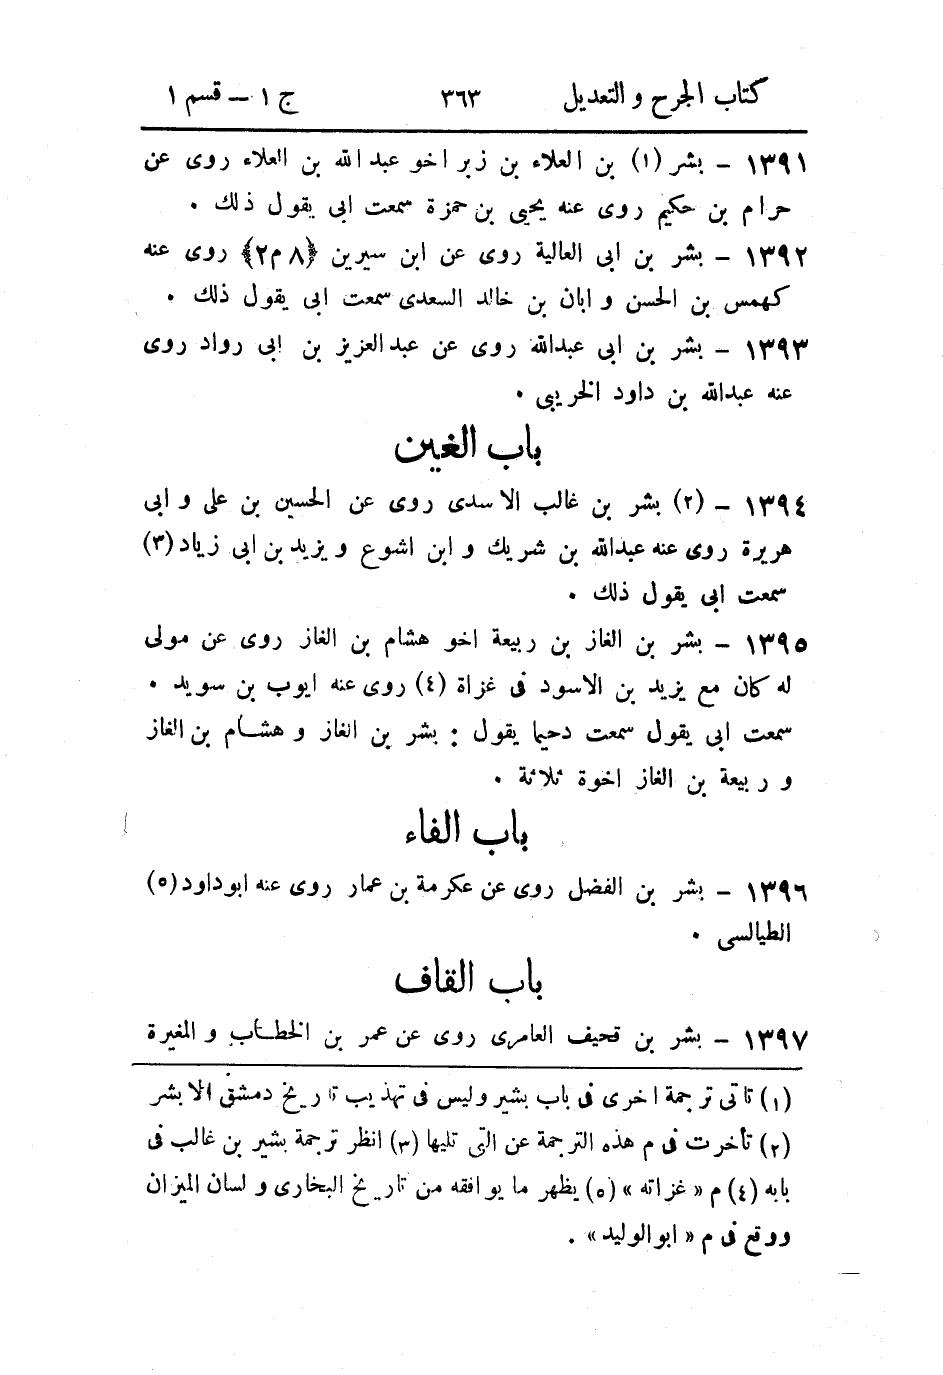 كتاب الجرح و التعديل ٣٦٣ ج ١ – قسم ١
١٣٩١ - بشر (١) بن العلاء بن زبر اخو عبد الله بن العلاء روى عن
حرام بن حكيم روى عنه يحيى بن حمزة سمعت ابى يقول ذلك .
١٣٩٢ - بشر بن ابى العالية روى عن ابن سيرين {٨ م٢} روى عنه
كهمس بن الحسن و ابان بن خالد السعدى سمعت ابى يقول ذلك .
١٣٩٣ - بشر بن ابى عبدالله روى عن عبدالعزيز بن ابى رواد روى
عنه عبدالله بن داود الخريبى .
باب الغين
١٣٩٤ - (٢) بشر بن غالب الاسدى روى عن الحسين بن على و ابى
هريرة روى عنه عبدالله بن شريك و ابن اشوع و يزيد بن ابى زياد (٣)
سمعت ابى يقول ذلك .
١٣٩٥ - بشر بن الغاز بن ربيعة اخو هشام بن الغاز روى عن مولى
له كان مع يزيد بن الاسود فى غزاة (٤) روى عنه ايوب بن سويد .
سمعت ابى يقول سمعت دحيما يقول : بشر بن الغاز و هشام بن الغاز
و ربيعة بن الغاز اخوة ثلاثة .
باب الفاء
١٣٩٦ - بشر بن الفضل روى عن عكرمة بن عمار روى عنه ابوداود (٥)
الطيالسى .
باب القاف
١٣٩٧ - بشر بن قحيف العامرى روى عن عمر بن الخطاب و المغيرة
(١) تاتى ترجمة اخرى فى باب بشير وليس فى تهذيب تاريخ دمشق الا بشر
(٢) تأخرت فى م هذه الترجمة عن التى تليها (٣) انظر ترجمة بشير بن غالب فى
بابه (٤) م « غزاته » (٥) يظهر ما يوافقه من تاريخ البخارى و لسان الميزان
ووقع فى م « ابوالوليد » .